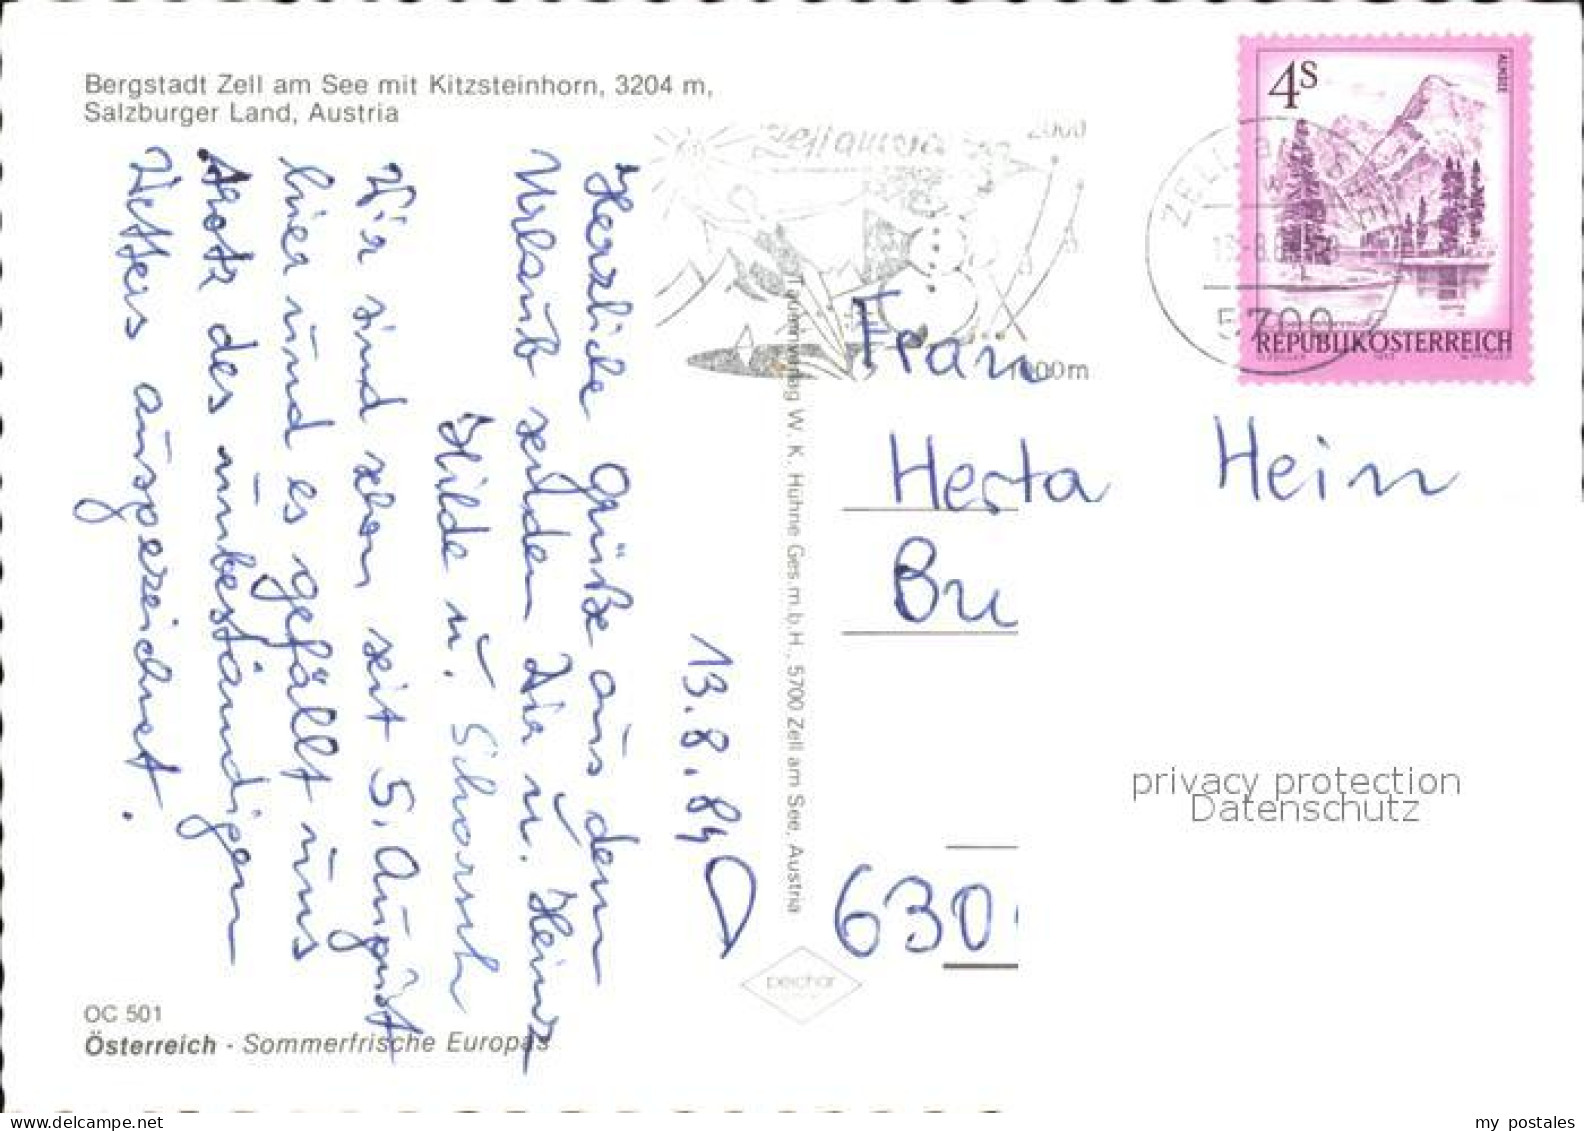 Bergstadt Zell am See mit Kitzsteinhorn, 3204 m,
Salzburger Land, Austria
13.8.84
Herzliche Grüße aus dem
Urlaub senden Dir u. Heinz
Hilde u. Schorsch
Wir sind schon seit 5. August
hier und es gefällt uns
trotz des unbeständigen
Wetters ausgezeichnet.
OC 501
Österreich - Sommerfrische Europas
Tauernverlag W. K. Hühne Ges.m.b.H., 5700 Zell am See, Austria
pechar
Zell am See
2000
1000m
ZELL a
5700
4S
ALMSEE
REPUBLIK ÖSTERREICH
Frau
Herta Hein
Bu
D
630
privacy protection
Datenschutz
delcampe.net
my_postales